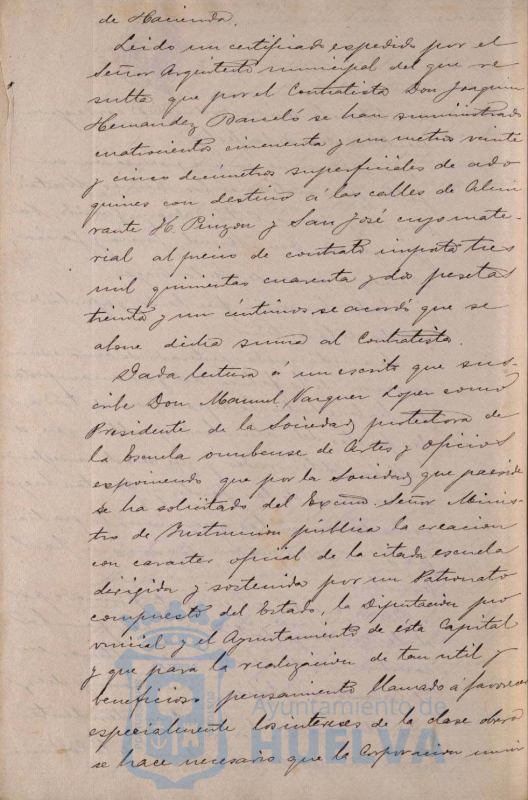 de Hacienda.
Leido un certificado expedido por el
Señor Arquitecto municipal del que re
sulta que por el Contratista Don Joaquin
Hernandez Barceló se han suministrado
cuatrocientos cincuenta y un metros veinte
y cinco decímetros superficiales de ado
quines con destino á las calles de Almi
rante H. Pinzon y San José cuyo mate-
rial al precio de contrato importa tres
mil quinientas cuarenta y dos pesetas
treinta y un céntimos se acordó que se
abone dicha suma al Contratista.
Dada lectura á un escrito que sus-
cribe Don Manuel Vazquez Lopez como
Presidente de la Sociedad protectora de
la Escuela onubense de Artes y Oficios
exponiendo que por la Sociedad que preside
se ha solicitado del Excmo. Señor Minis-
tro de Instruccion pública la creacion
con caracter oficial de la citada escuela
dirigida y sostenida por un Patronato
compuesto del Estado, la Diputacion pro
vincial y el Ayuntamiento de esta Capital
y que para la realizacion de tan util y
beneficioso pensamiento llamado á favorecer
especialmente los intereses de la clase obrera
se hace necesario que la Corporacion
Ayuntamiento de
HUELVA